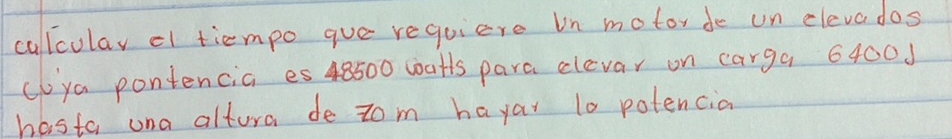 calcular el tiempo que requiere un motor de un elevados
cuya pontencia es 48500 watts para elevar un carga 6400J
hasta una altura de 70m hayar la potencia